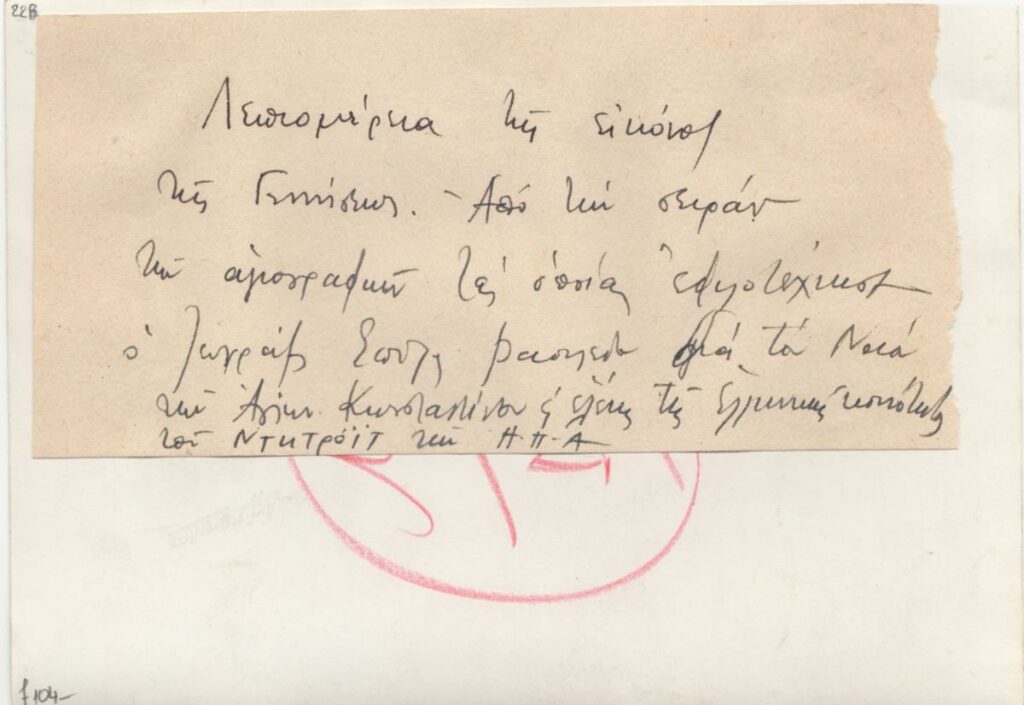 228
Λεπτομέρεια τῆς εἰκόνος
τῆς Γεννήσεως. - Ἀπό τήν σειράν
τῶν ἁγιογραφιῶν τάς ὁποίας ἐφιλοτέχνησε
ὁ ζωγράφος Σπύρος Βασιλείου διά τό Ναό
τῶν Ἁγίων Κωνσταντίνου & Ἑλένης τῆς Ἑλληνικῆς κοινότητος
τοῦ ΝΤΗΤΡΟΪΤ τῶν Η-Π-Α
f 104-